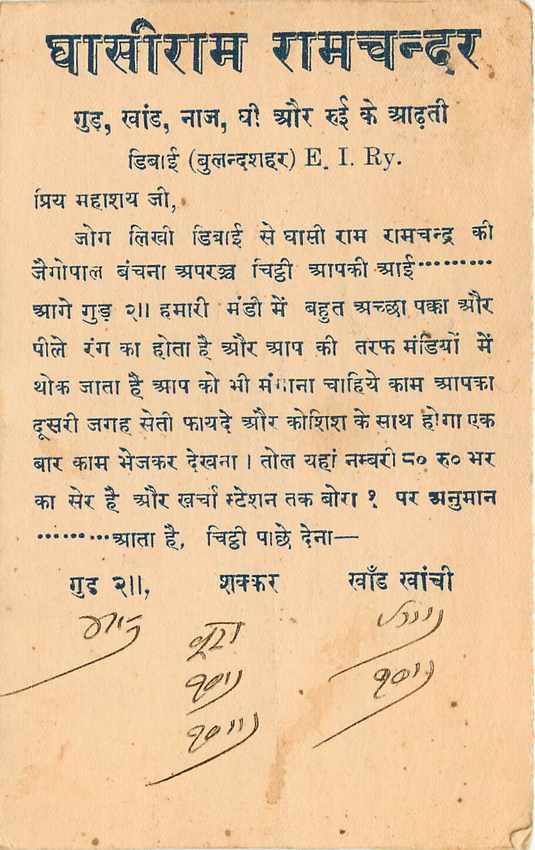 घासीराम रामचन्दर
गुड़, खांड, नाज, घी और रुई के आढ़ती
डिबाई (बुलन्दशहर) E. I. Ry.
प्रिय महाशय जी,
जोग लिखी डिबाई से घासी राम रामचन्द्र की
जैगोपाल बंचना अपरञ्च चिट्ठी आपकी आई··········
आगे गुड़ २॥ हमारी मंडी में बहुत अच्छा पक्का और
पीले रंग का होता है और आप की तरफ मंडियों में
थोक जाता है आप को भी मंगाना चाहिये काम आपका
दूसरी जगह सेती फायदे और कोशिश के साथ होगा एक
बार काम भेजकर देखना । तोल यहां नम्बरी ८० रु० भर
का सेर है और खर्चा स्टेशन तक बोरा १ पर अनुमान
··········आता है, चिट्ठी पाछे देना—
गुड २॥, शक्कर खाँड खांची
बूरा